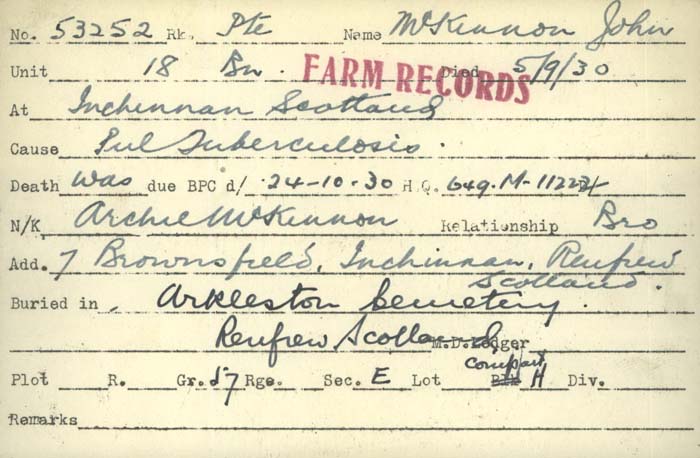 No. 53252 Rk. Pte Name McKennon John
Unit 18 Bn. FARM RECORDS Died 5/9/30
At Inchinnan Scotland
Cause Pul Tuberculosis.
Death was due BPC d/ 24-10-30 H.Q. 649-M-11222
N/K Archie McKennon Relationship Bro
Add. 7 Brownsfield, Inchinnan, Renfrew
Scotland.
Buried in Arkleston Cemetery.
Renfrew Scotland M.D. Ledger
Compart
Plot R. Gr. 57 Rge. Sec. E Lot Blk H Div.
Remarks